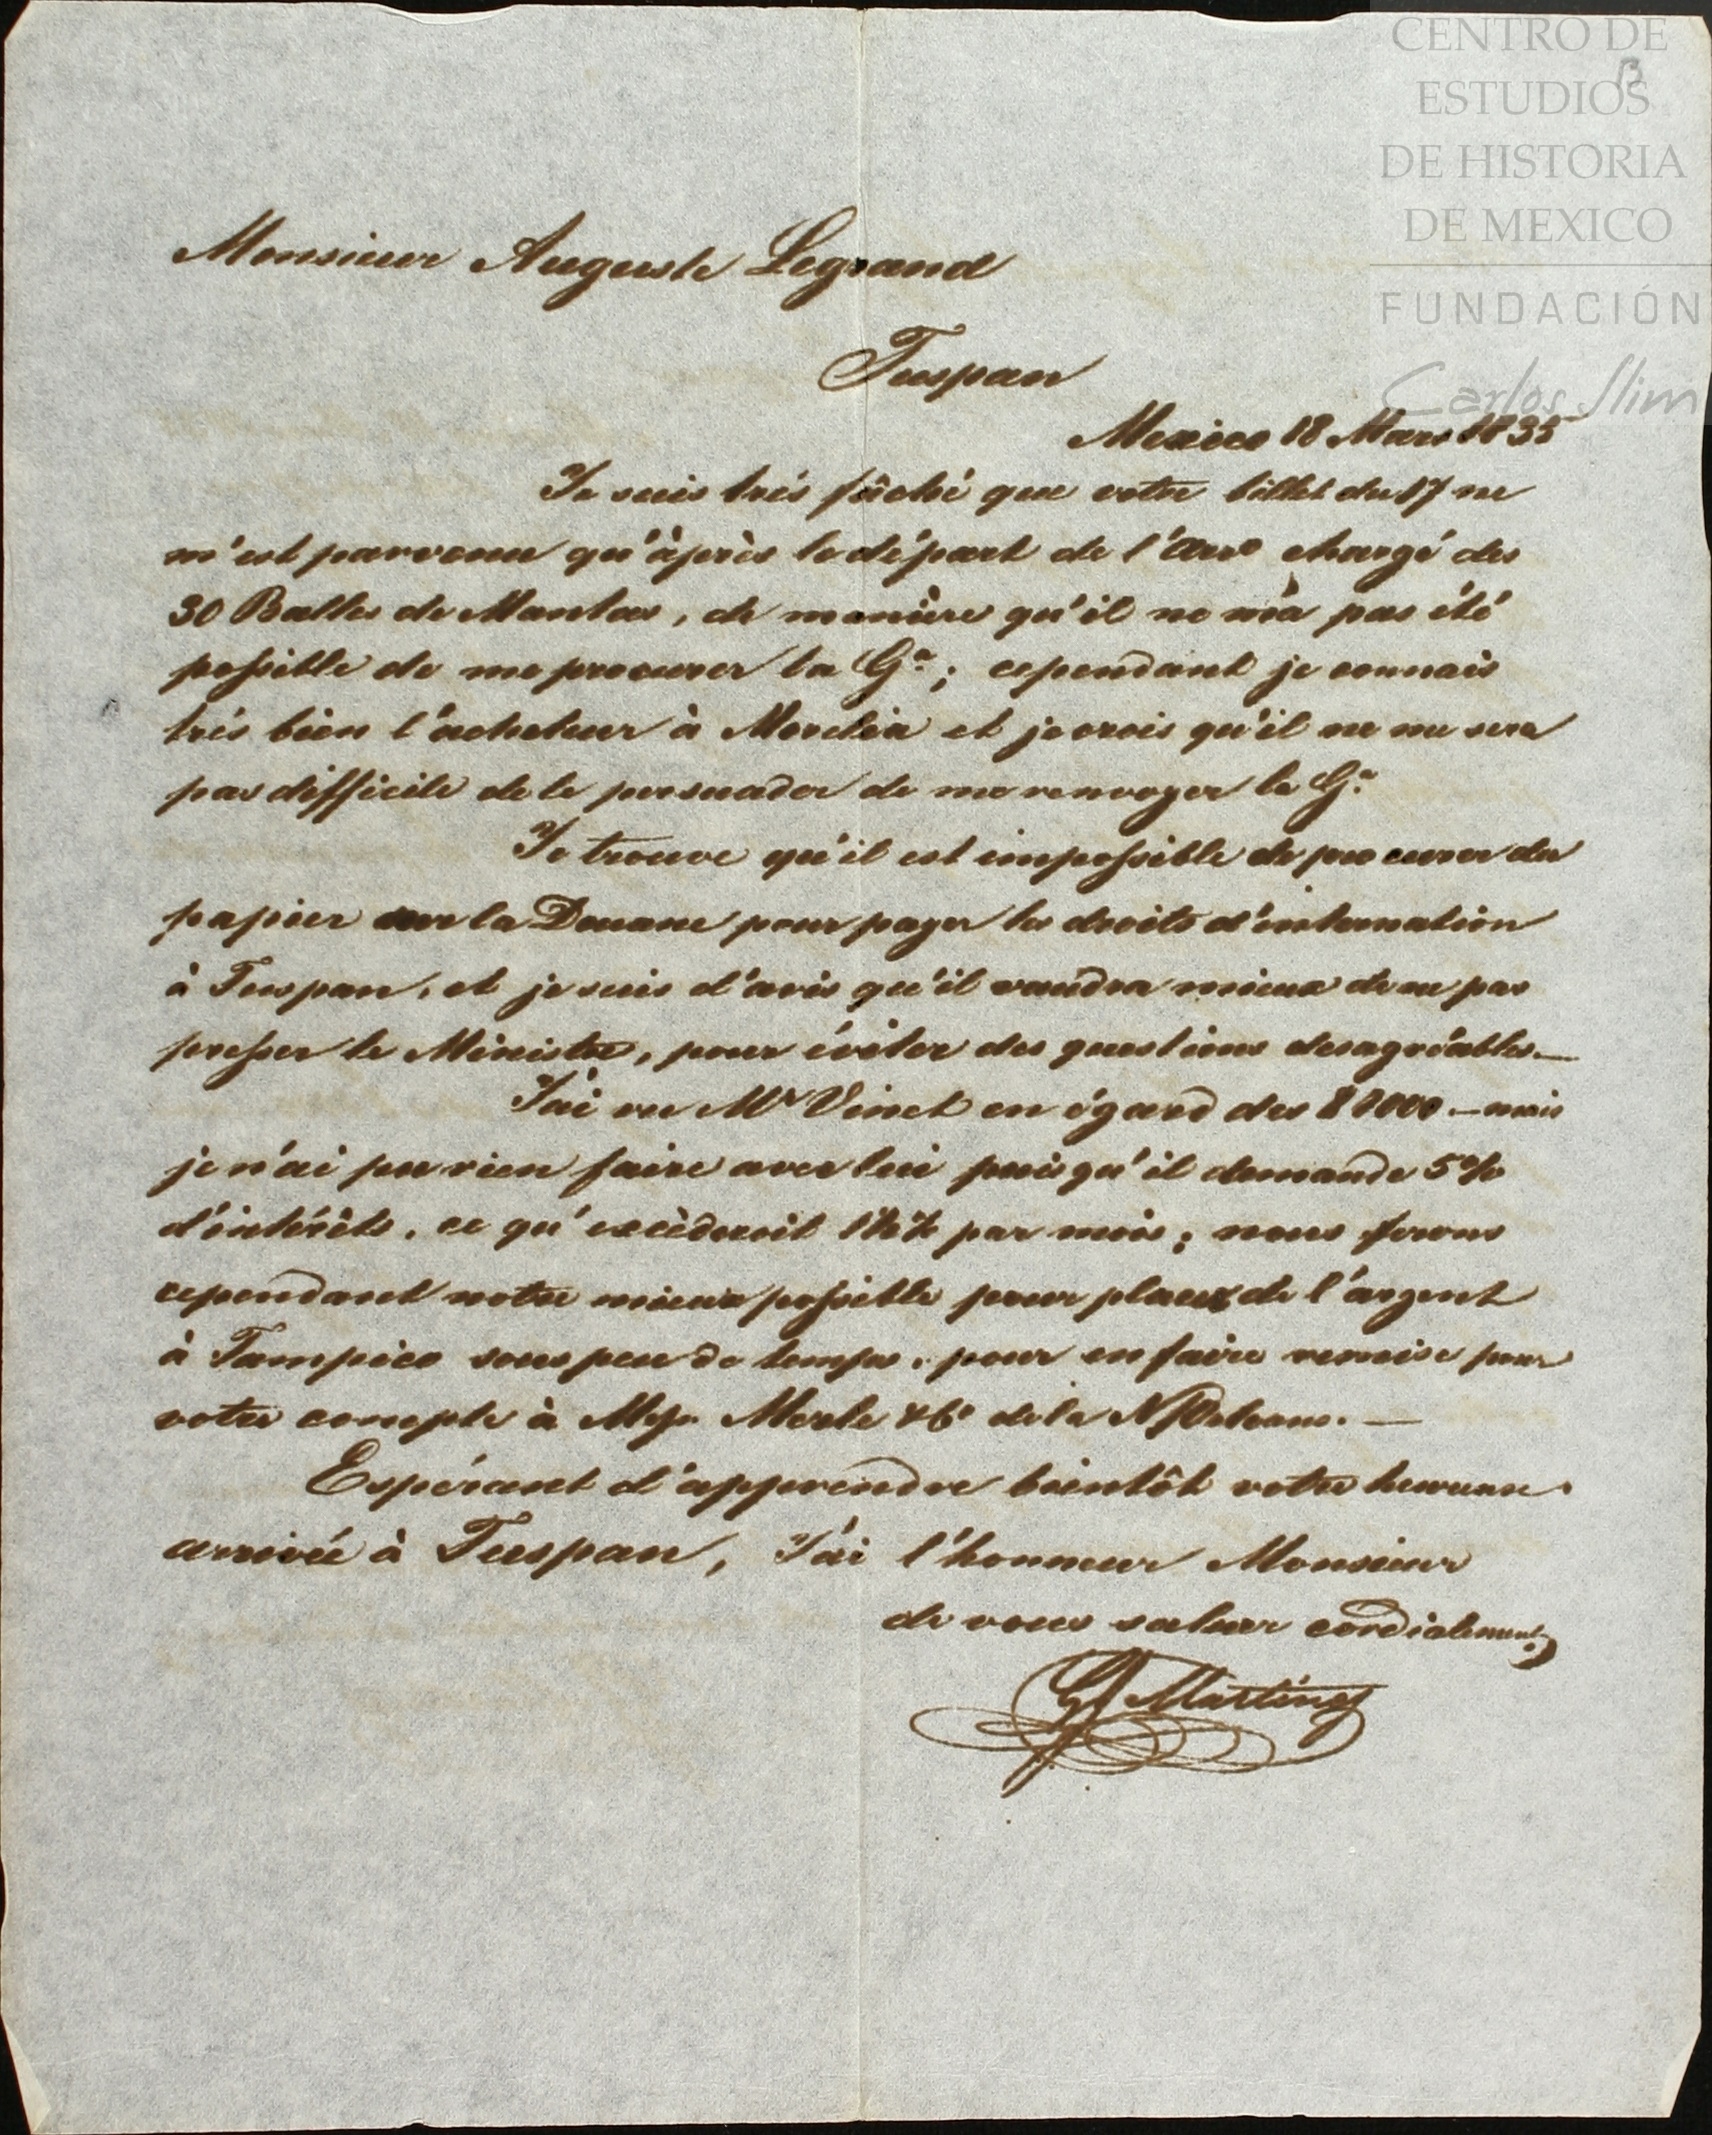 CENTRO DE
ESTUDIOS
DE HISTORIA
DE MEXICO
FUNDACIÓN
Carlos Slim
Monsieur Auguste Legrand
Tuspan
Mexico 18 Mars 1835
Je suis trés fâché que votre billet du 17 ne
m'est parvenu qu'àprès le départ de l'arro chargé des
30 Balles de Mantas, de manière qu'il ne m'a pas été
possible de me procurer la Ga; cependant je connais
trés bien l'acheteur à Morelia et je crois qu'il ne me sera
pas difficile de le persuader de me renvoyer la Ga
Je trouve qu'il est impossible de procurer du
papier sur la Douane pour payer les droits d'internation
à Tuspan, et je suis d'avis qu'il vaudra mieux de ne pas
presser le Ministre, pour éviter des questions desagréables. —
J'ai vu Mr Vinet en égard des — mais
je n'ai pu rien faire avec lui puisqu'il demande 5%
d'intérêts, ce qu'excèderoit par mois; nous ferons
cependant notre mieux possible pour placer de l'argent
à Tampico sous peu de temps, pour en faire remise pour
votre compte à Mess. Merle & Co de la N Orleans. —
Espérant d'apprendre bientôt votre heureuse
arrivée à Tuspan, J'ai l'honneur Monsieur
de vous saluer cordialement
G Martinez